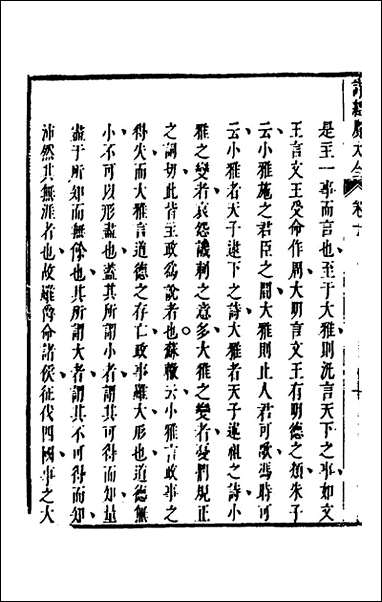 詩經大全 卷十
是主一事而言也至于大雅則汎言天下之事如文
王言文王受命作周大明言文王有明德之類朱子
云小雅施之君臣之間大雅則止人君可歌馮時可
云小雅者天子逮下之詩大雅者天子述祖之詩小
雅之變者哀怨譏刺之意多大雅之變者憂憫規正
之詞切此皆主政敎說者也蘇轍云小雅言政事之
得失而大雅言道德之存亡政事雖大形也道德無
小不可以形盡也蓋其所謂小者謂其可得而知量
盡于所知而無餘也其所謂大者謂其不可得而知
沛然其無涯者也故雖爵命諸侯征伐四國事之大